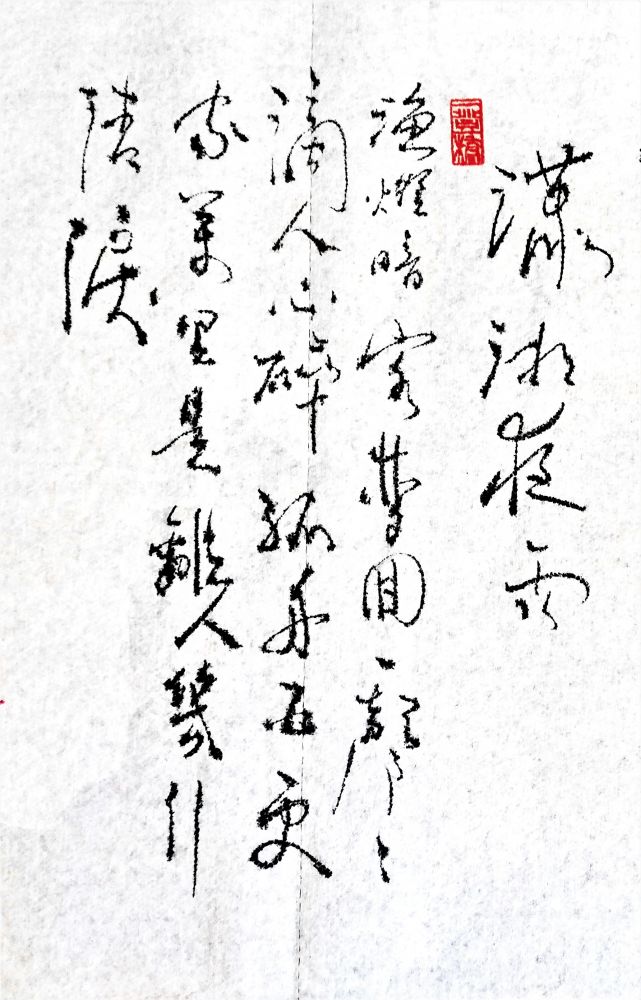 瀟湘夜雨
漁燈暗客夢囬一聲〻
滴人心碎孤舟五更
家萬里是離人幾行
情淚